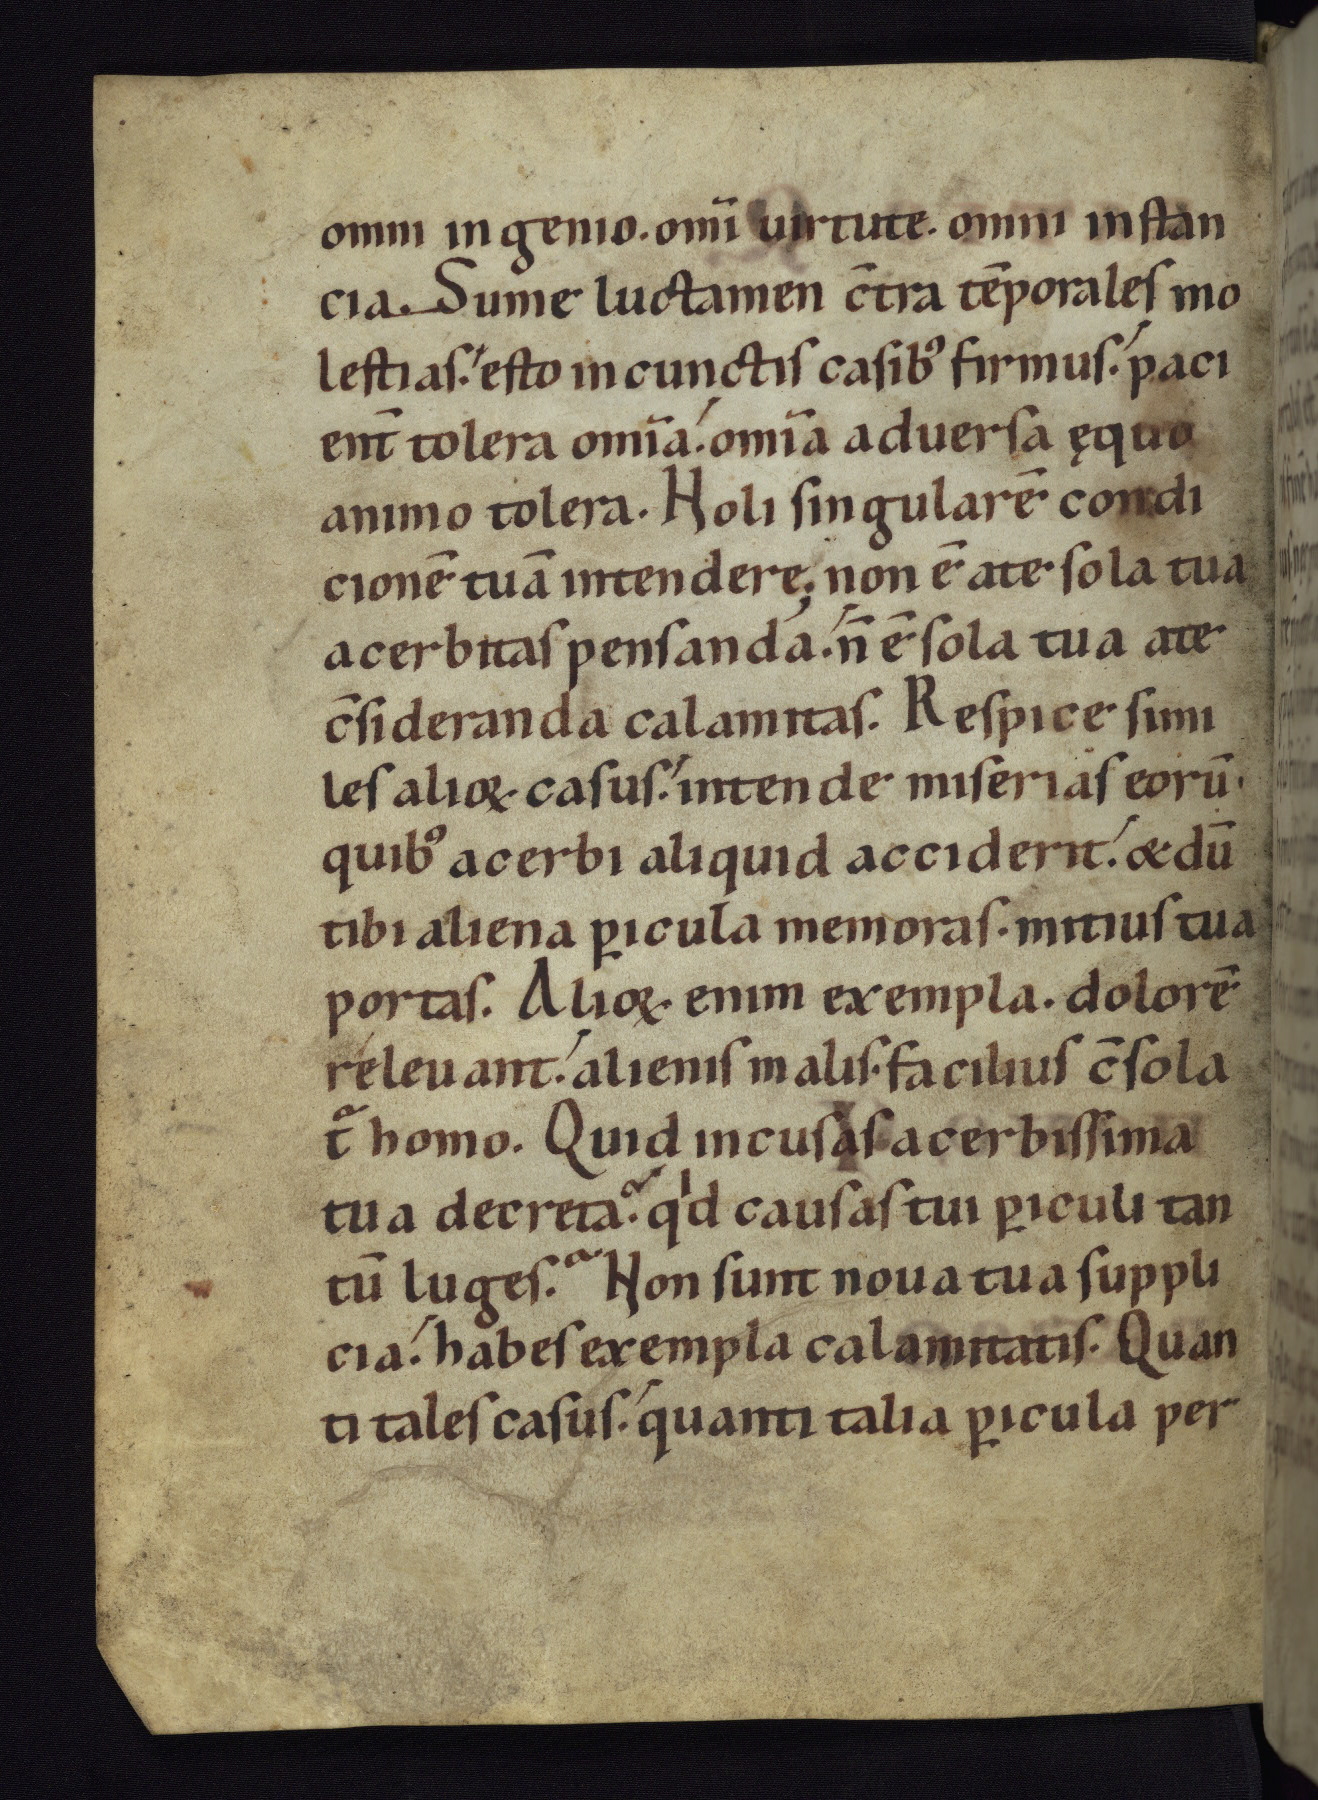 omni ingenio. om̄i uirtute. omni instan
cia. Sume luctamen c̄tra tēporales mo
lestias. esto in cunctis casibꝰ firmus. paci
ent̄ tolera omīa. omīa aduersa ęquo
animo tolera. Noli singularē condi
cionē tuā intendere; non ē ate sola tua
acerbitas pensanda. n̄ ē sola tua ate
c̄sideranda calamitas. Respice simi
les alioꝝ casus. intende miserias eorū.
quibꝰ acerbi aliquid acciderit. & dū
tibi aliena ꝑicula memoras. mitius tua
portas. Alioꝝ enim exempla. dolorē
releuant. alienis malis. facilius c̄sola
tᷓ homo. Quid incusas acerbissima
tua decreta. qͥd causas tui ꝑiculi tan
tū luges. Non sunt noua tua suppli
cia. habes exempla calamitatis. Quan
ti tales casus. quanti talia ꝑicula per